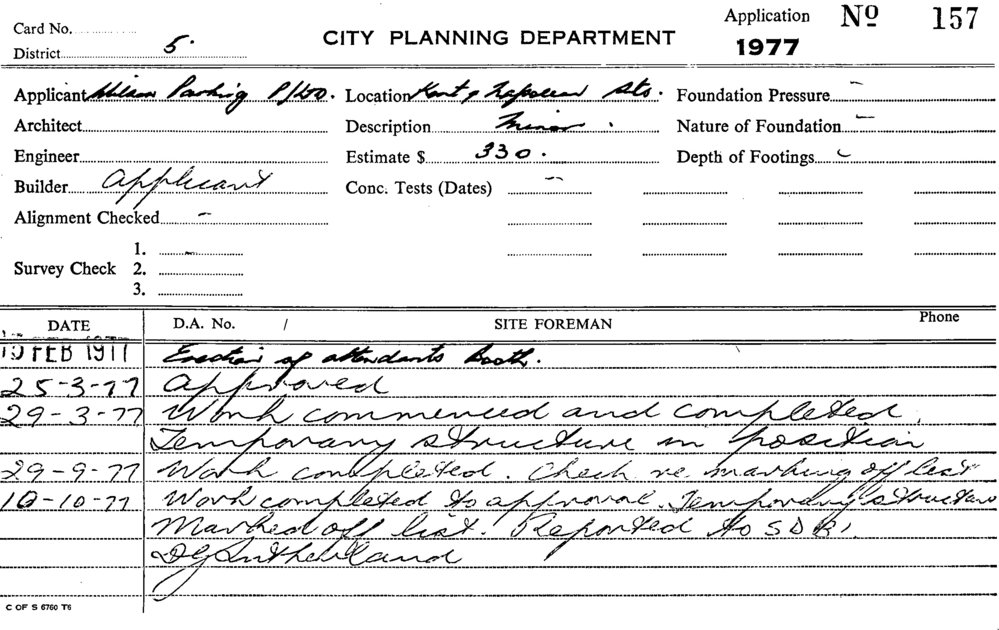 Card No.
District 5.
CITY PLANNING DEPARTMENT
Application
1977
No 157
Applicant Wilson Parking P/Ltd. Location Kent & Napoleon Sts. Foundation Pressure –
Architect Description Minor. Nature of Foundation –
Engineer Estimate $ 330. Depth of Footings
Builder Applicant Conc. Tests (Dates) –
Alignment Checked –
1.
Survey Check 2.
3.
DATE D.A. No. / SITE FOREMAN Phone
FEB 1977 Erection of attendants booth.
25-3-77 Approved
29-3-77 Work commenced and completed.
Temporary structure in position
29-9-77 Work completed. Check re marking off list
10-10-77 Work completed to approval. Temporary structure
Marked off list. Reported to S D B.
D G Sutherland
C OF S 6760 T6